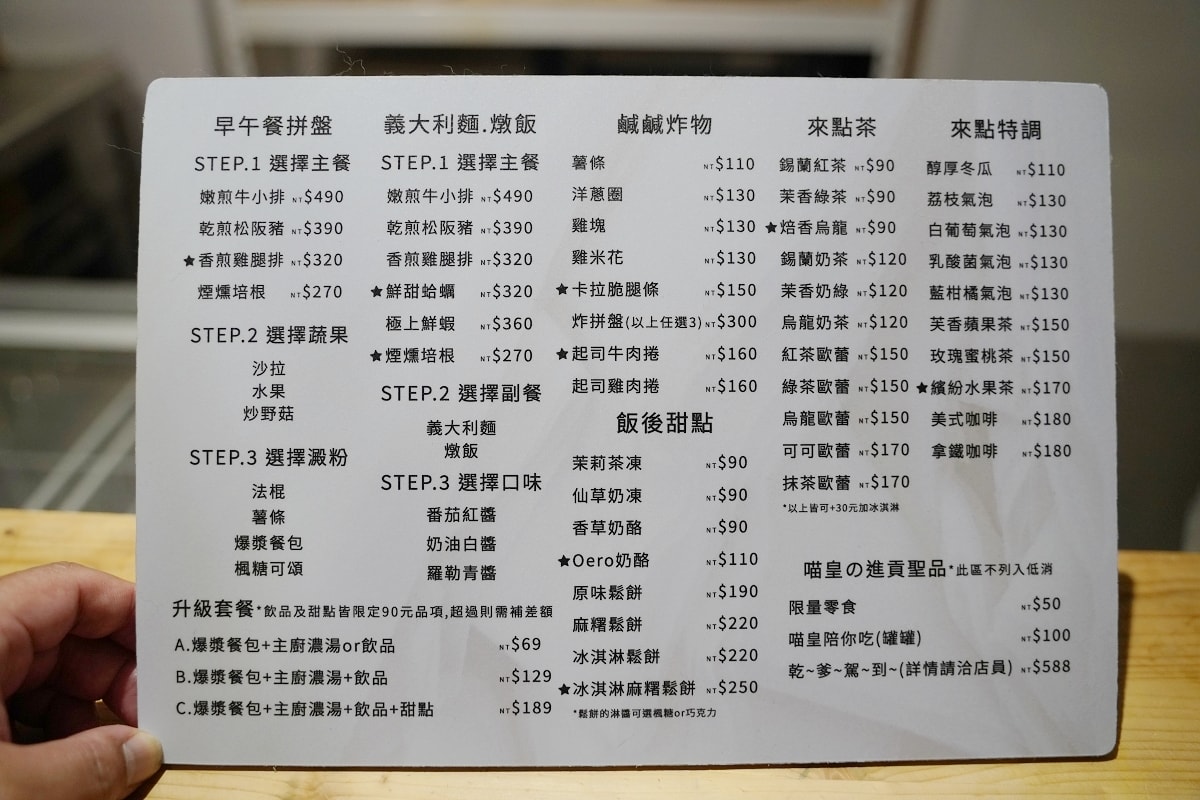 早午餐拼盤
STEP.1 選擇主餐
嫩煎牛小排 NT$490
乾煎松阪豬 NT$390
★香煎雞腿排 NT$320
煙燻培根 NT$270
STEP.2 選擇蔬果
沙拉
水果
炒野菇
STEP.3 選擇澱粉
法棍
薯條
爆漿餐包
楓糖可頌
義大利麵.燉飯
STEP.1 選擇主餐
嫩煎牛小排 NT$490
乾煎松阪豬 NT$390
香煎雞腿排 NT$320
★鮮甜蛤蠣 NT$320
極上鮮蝦 NT$360
★煙燻培根 NT$270
STEP.2 選擇副餐
義大利麵
燉飯
STEP.3 選擇口味
番茄紅醬
奶油白醬
羅勒青醬
升級套餐*飲品及甜點皆限定90元品項,超過則需補差額
A.爆漿餐包+主廚濃湯or飲品 NT$69
B.爆漿餐包+主廚濃湯+飲品 NT$129
C.爆漿餐包+主廚濃湯+飲品+甜點 NT$189
鹹鹹炸物
薯條 NT$110
洋蔥圈 NT$130
雞塊 NT$130
雞米花 NT$130
★卡拉脆腿條 NT$150
炸拼盤(以上任選3) NT$300
★起司牛肉捲 NT$160
起司雞肉捲 NT$160
飯後甜點
茉莉茶凍 NT$90
仙草奶凍 NT$90
香草奶酪 NT$90
★Oero奶酪 NT$110
原味鬆餅 NT$190
麻糬鬆餅 NT$220
冰淇淋鬆餅 NT$220
★冰淇淋麻糬鬆餅 NT$250
*鬆餅的淋醬可選楓糖or巧克力
來點茶
錫蘭紅茶 NT$90
茉香綠茶 NT$90
★焙香烏龍 NT$90
錫蘭奶茶 NT$120
茉香奶綠 NT$120
烏龍奶茶 NT$120
紅茶歐蕾 NT$150
綠茶歐蕾 NT$150
烏龍歐蕾 NT$150
可可歐蕾 NT$170
抹茶歐蕾 NT$170
*以上皆可+30元加冰淇淋
來點特調
醇厚冬瓜 NT$110
荔枝氣泡 NT$130
白葡萄氣泡 NT$130
乳酸菌氣泡 NT$130
藍柑橘氣泡 NT$130
芙香蘋果茶 NT$150
玫瑰蜜桃茶 NT$150
★繽紛水果茶 NT$170
美式咖啡 NT$180
拿鐵咖啡 NT$180
喵皇の進貢聖品*此區不列入低消
限量零食 NT$50
喵皇陪你吃(罐罐) NT$100
乾~爹~駕~到~(詳情請洽店員) NT$588